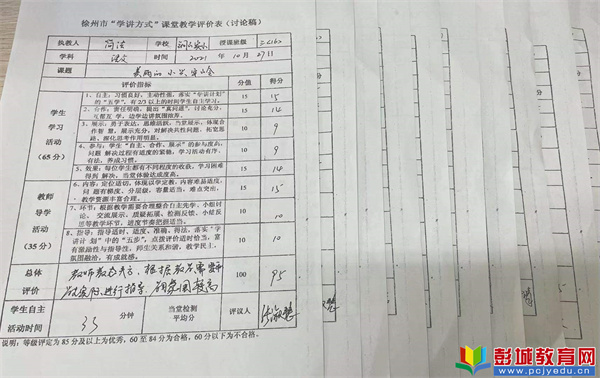 徐州市“学讲方式”课堂教学评价表（讨论稿）
执教人 简洁 学校 授课班级
学科 语文 时间 2021 年 10 月 27 日
课题 美丽的小兴安岭
评价指标 分值 得分
学生
学习
活动
（65分）
1、自主：习惯良好，主动性强，落实“学讲计划”
的“五学”，有2/3以上的时间学生自主学习。 15 15
2、合作：责任明确，提出“真问题”，讨论充分，
互帮互学，边学边讲氛围浓厚。 15 14
3、展示：勇于表达，思维活跃，当堂展示，体现合
作智慧，展示充分，对解决共性问题，拓宽思
路、深化思考作用明显。 10 9
4、参与：学生“自主、合作、展示”的参与度高，
问题解决过程有适度的紧张，学习活动有序、
有法，养成习惯。 10 9
5、效果：每位学生都有不同程度的收获，学习困难
得到解决，当堂体验达成度高。 15 14
教师
导学
活动
（35分）
6、内容：定位适切，体现以学定教，内容难易适度，
问题有梯度、分层级，容量适当，难点突出，
教学资源丰富合理。 15 15
7、环节：根据教学需要合理整合自主先学、小组讨
论、交流展示、质疑拓展、检测反馈、小结反
思等教学环节，进度节奏把握适当。 10 10
8、指导：指导适时、适度、准确、得法，落实“学
讲计划”中的“五步”，点拨评价适时恰当，富
有激励性与指导性，师生关系和谐，教学民主，
氛围融洽，有成就感。 10 10
总体
评价
教师教态大方，根据教学需要
进行指导，朗读 100 95
学生自主
活动时间 35 分钟 当堂检测
平均分 评议人
说明：等级评定为85分及以上为优秀，60至84分为合格，60分以下为不合格。
彭城教育网
www.pcjyedu.cn